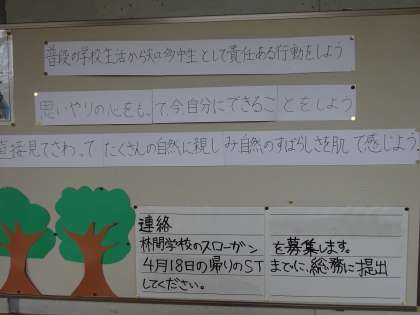 普段の学校生活から知多中生として責任ある行動をしよう
思いやりの心をもって今、自分にできることをしよう
直接見てさわって たくさんの自然に親しみ自然のすばらしさを肌で感じよう
連絡
林間学校のスローガンを募集します。
4月18日の帰りのSTまでに、総務に提出
してください。